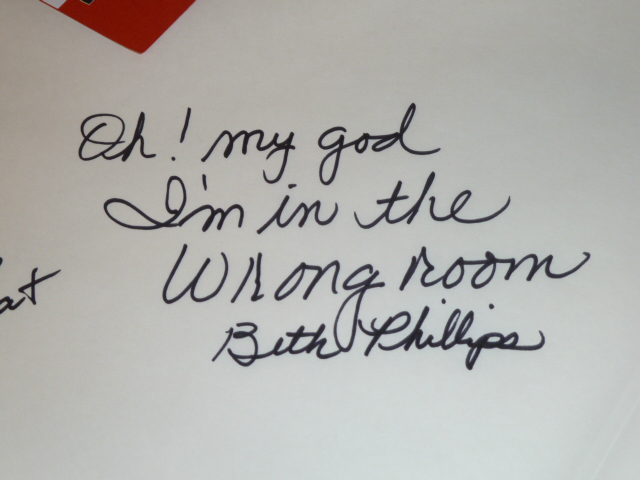 Oh! my god
I'm in the
Wrong room
Beth Phillips